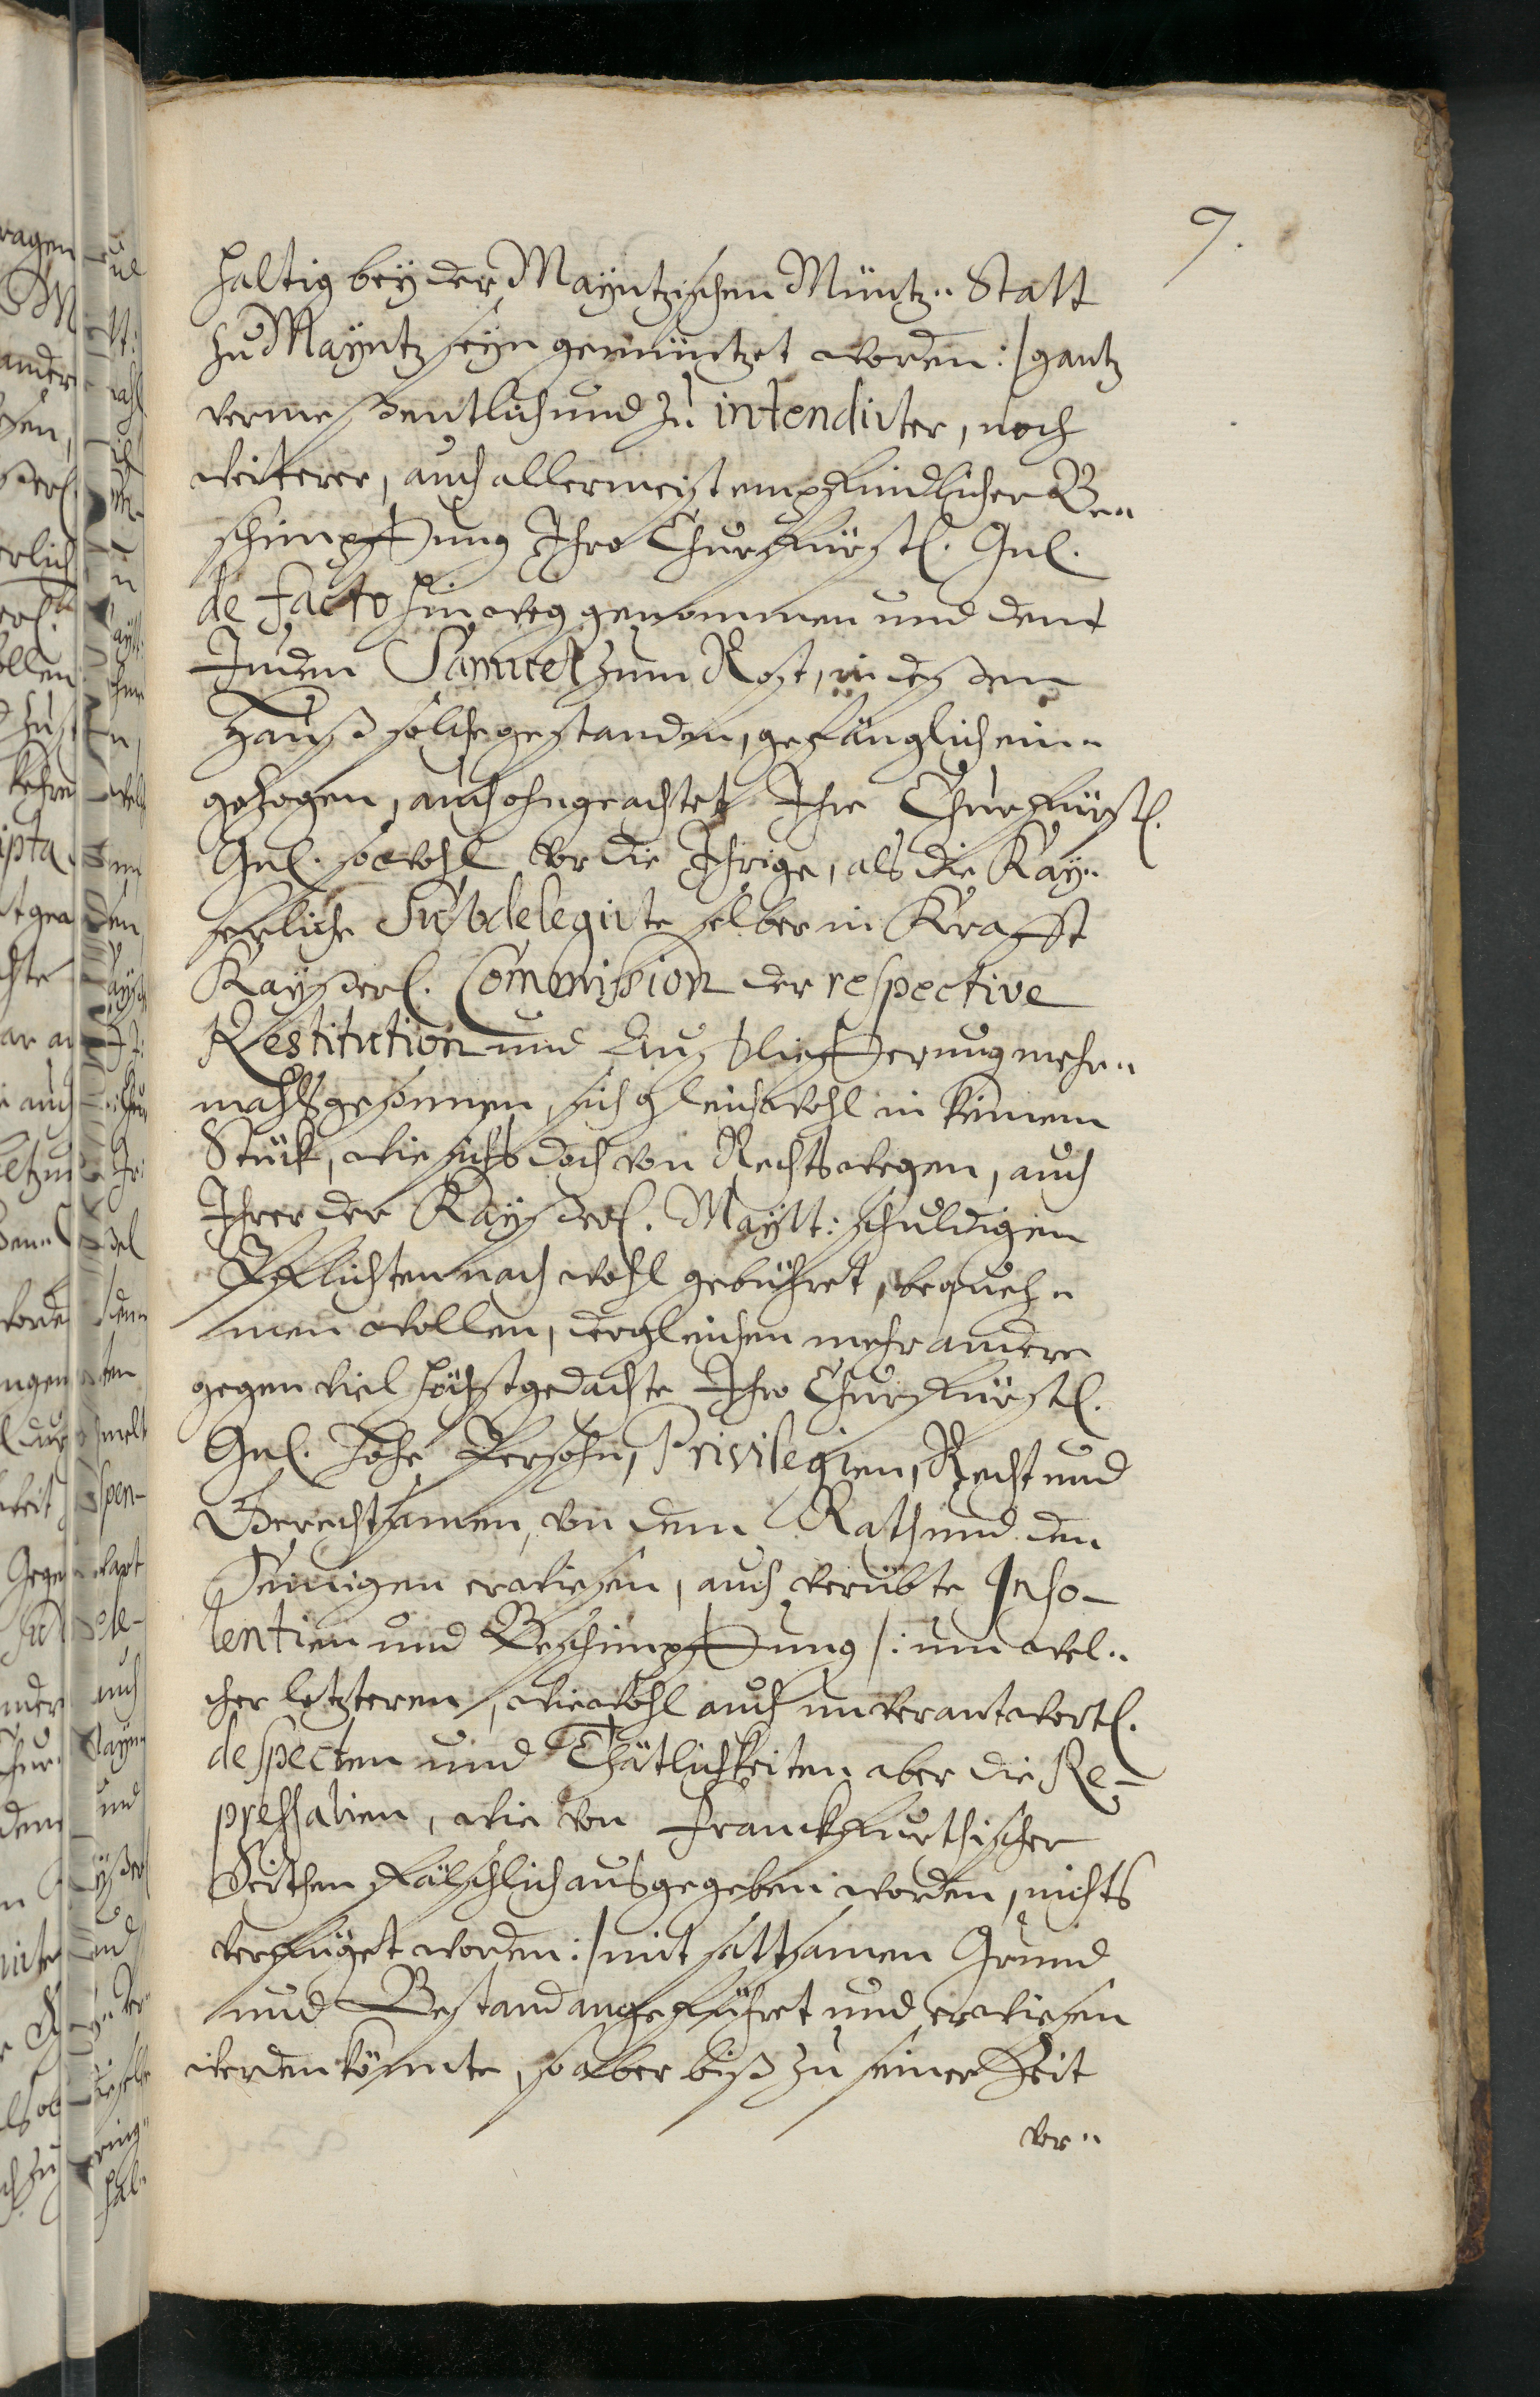 7.
haltig bey der Mayntzischen Müntz„ Statt
zu Mayntz seyn gemüntzet worden :/ gantz
vermessentlich und zu intendirter, noch
weiterer, auch allermeist empfindlicher Be„
schimpffung Ihro Churfürstl. Gnl.
de facto hinweg genommen und dem
Juden Samuel zum Rost, in dessen
Hauß solche gestanden, gefänglich ein„
gezogen, auch ohngeachtet Ihre Churfürstl.
Gnl. sowohl vor die Ihrige, als die Kay„
serliche Subdelegirte selber in Krafft
Kayserl. Commission der respective
Restitution und Außlieferung mehr„
mahls gesonnen, sich gleichwohl in keinem
Stück, wie sichs doch von Rechts wegen, auch
Ihrer der Kayserl. Maytt: schuldigen
Pflichten nach wohl gebühret, bequeh„
men wollen, dergleichen mehr andere
gegen viel höchstgedachte Ihro Churfürstl.
Gnl. hohe Persohn, Privilegien, Recht und
Gerechtsamen, von dem Rath und den
Seinigen erwiesen, auch verübte Inso-
lentien und Beschimpffung /: um wel„
cher letzteren, wiewohl auch unverantwortl.
despecten und Thätlichkeiten aber die Re-
pressalien, wie von Franckfurthischer
Seithen fälschlich ausgegeben worden, nichts
verfüget worden :/ mit sattsamen Grund
und Bestand angeführet und erwiesen
werden könnte, so aber biß zu seiner Zeit
vor„